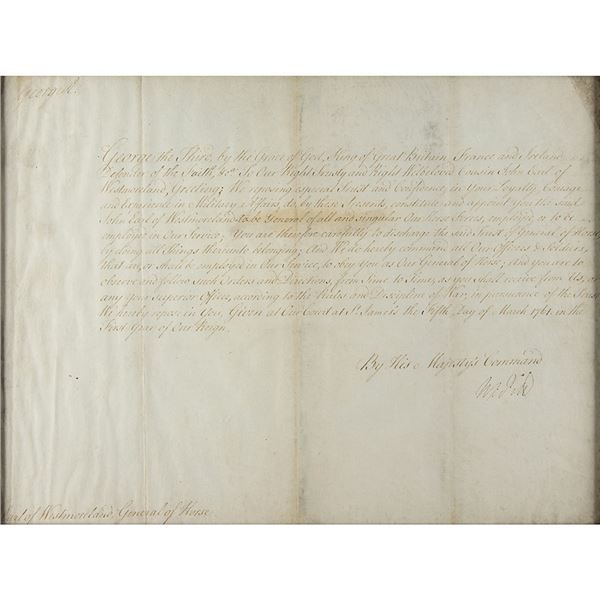 George R.
George the Third, by the Grace of God, King of Great Britain, France and Ireland,
Defender of the Faith, &c.ª To Our Right Trusty and Right Welbeloved Cousin John Earl of
Westmoreland, Greeting; We reposing especial Trust and Confidence in Your Loyalty, Courage
and Experience in Military Affairs, do, by these Presents, constitute and appoint you the said
John Earl of Westmoreland to be General of all and singular Our Horse Forces, employed or to be
employed in Our Service; You are therefore carefully to discharge the said Trust of General of Horse,
by doing all Things thereunto belonging; And We do hereby command all Our Officers & Soldiers,
that are, or shall be employed in Our Service, to obey you as Our General of Horse; And you are to
observe and follow such Orders and Directions, from Time to Time, as you shall receive from Us, or
any Your Superior Officer, according to the Rules and Discipline of War; in pursuance of the Trust
We hereby repose in You. Given at Our Court at St. James's the Fifth Day of March 1761. in the
First Year of Our Reign.
By His Majesty's Command
W. Pitt
Earl of Westmoreland, General of Horse